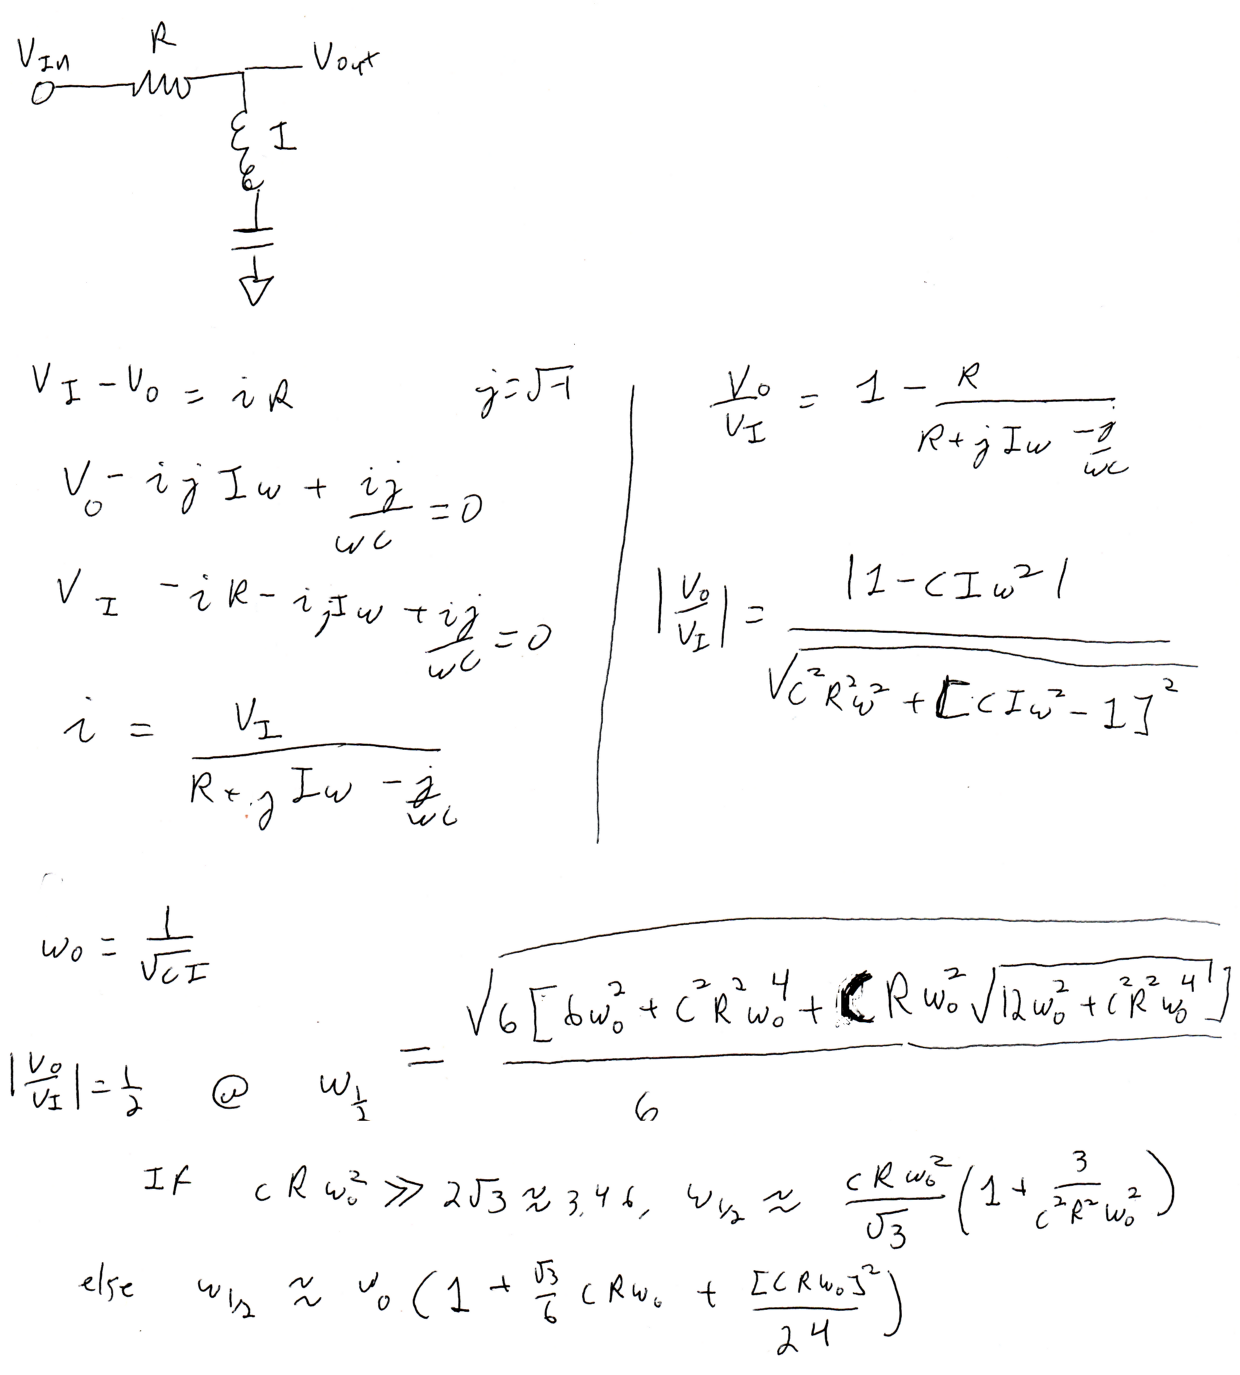 V_In R V_out
I
V_I - V_0 = iR j = √-1
V_0 - ijIω + ij/ωC = 0
V_I - iR - ijIω + ij/ωC = 0
i = V_I / (R + jIω - j/ωC)
V_0/V_I = 1 - R / (R + jIω - j/ωC)
|V_0/V_I| = |1 - CIω²| / √(C²R²ω² + [CIω² - 1]²)
ω_0 = 1/√CI
|V_0/V_I| = 1/2 @ ω_1/2 = √(6[6ω_0² + C²R²ω_0⁴ + CRω_0²√(12ω_0² + C²R²ω_0⁴)]) / 6
If CRω_0² ≫ 2√3 ≈ 3.46, ω_1/2 ≈ CRω_0²/√3 (1 + 3/C²R²ω_0²)
else ω_1/2 ≈ ω_0 (1 + √3/6 CRω_0 + [CRω_0]²/24)